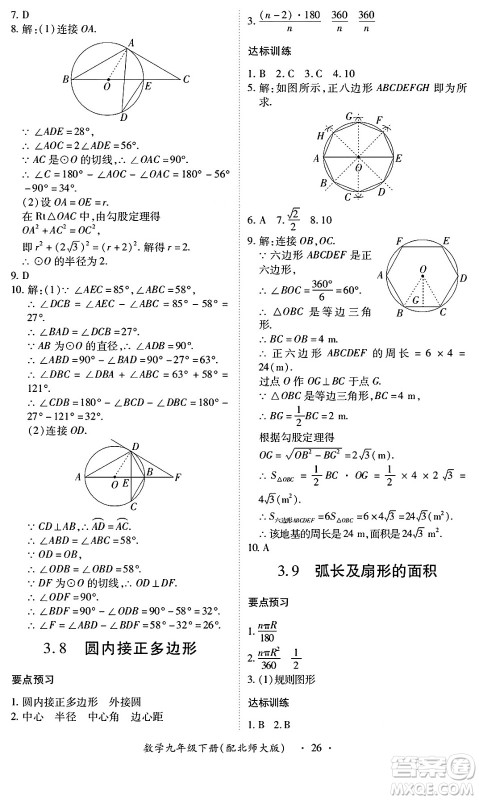 7. D
8. 解:(1)连接 OA.
A
B
O
E
C
D
∵ ∠ADE=28°,
∴ ∠AOC=2∠ADE=56°.
∵ AC 是⊙O 的切线,∴ ∠OAC=90°.
∴ ∠C=180°-∠AOC-∠OAC=180°-56°
-90°=34°.
(2)设 OA=OE=r.
在 Rt△OAC 中,由勾股定理得
OA²+AC²=OC²,
即 r²+(2√3)²=(r+2)².解得 r=2.
∴ ⊙O 的半径为 2.
9. D
10. 解:(1)∵ ∠AEC=85°,∠ABC=58°,
∴ ∠DCB=∠AEC-∠ABC=85°-58°=
27°.
∴ ∠BAD=∠DCB=27°.
∵ AB 为⊙O 的直径,∴ ∠ADB=90°.
∴ ∠ABD=90°-∠BAD=63°.
∴ ∠DBC=∠DBA+∠ABC=63°+58°=
121°.
∴ ∠BDC=180°-∠DBC-∠DCB=180°-
121°-27°=32°.
(2)连接 OD.
D
A
O
E
B
F
C
∵ CD⊥AB,∴ AD=AC.
∴ ∠ABD=∠ABC=58°.
∵ OD=OB,∴ ∠ODB=∠ABD=58°.
∵ DF 为⊙O 的切线,∴ ∠ODF=90°.
∴ ∠BDF=90°-58°=32°.
∴ ∠F=∠ABD-∠BDF=58°-32°=26°.
3.8 圆内接正多边形
要点预习
1. 圆内接正多边形 外接圆
2. 中心 半径 中心角 边心距
3. (n-2)·180/n 360/n 360/n
达标训练
1. B 2. C 3. C 4. 10
5. 解:如图所示,正八边形 ABCDEFGH 即为所
求.
G
H
F
A
O
E
B
D
C
6. A 7. √2/2 8. 10
9. 解:连接 OB,OC.
∵ 六边形 ABCDEF 是正
六边形,
∴ ∠BOC=360°/6=60°.
∴ △OBC 是等边三角
形.
F
E
A
O
D
B
G
C
∴ BC=OB=4 m.
∴ 正六边形 ABCDEF 的周长=6×4=
24(m).
过点 O 作 OG⊥BC 于点 G.
∵ △OBC 是等边三角形,BC=4 m,
∴ BG=1/2 BC=2 m.
根据勾股定理得
OG=√(OB²-BG²)=2√3(m).
∴ S△OBC=1/2 BC·OG=1/2×4×2√3=
4√3(m²).
∴ S六边形ABCDEF=6S△OBC=6×4√3=24√3(m²).
∴ 该地基的周长是 24 m,面积是 24√3 m².
10. A
3.9 弧长及扇形的面积
要点预习
1. nπR/180
2. nπR²/360 1/2 lR
3. (1)规则图形
达标训练
1. B 2. B
数学九年级下册(配北师大版) · 26 ·